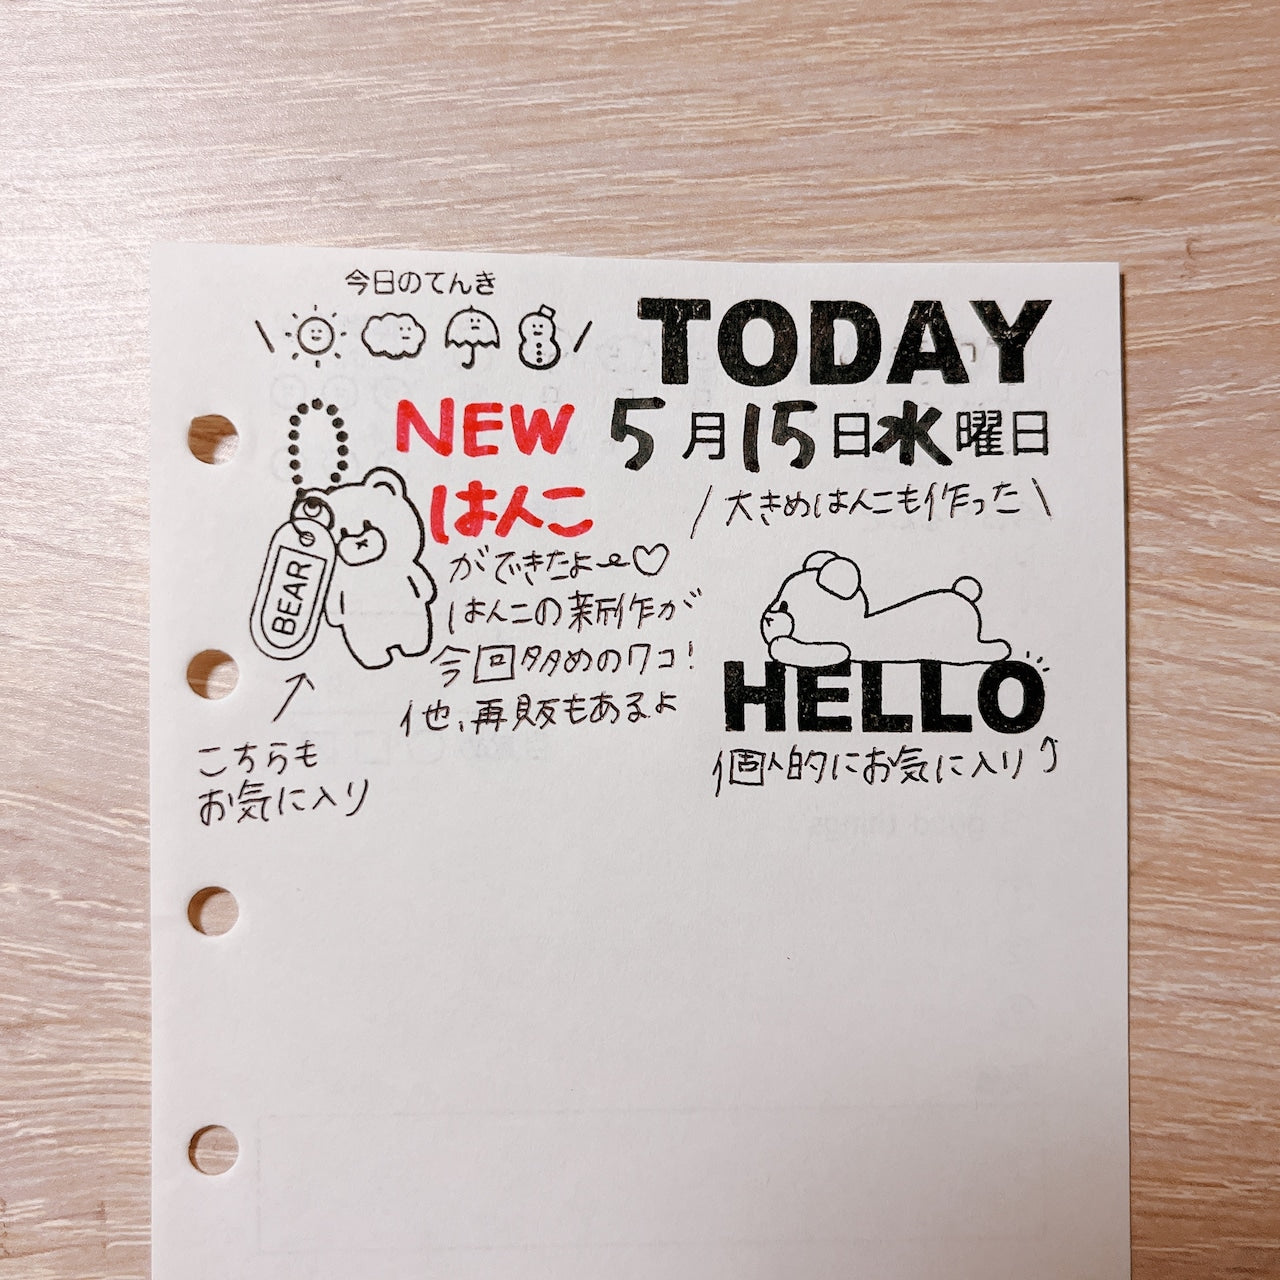 今日のてんき
TODAY
5月15日水曜日
NEW
はんこ
ができたよ〜♡
はんこの新作が
今回多めのワコ!
他、再販もあるよ
BEAR
こちらも
お気に入り
/大きめはんこも作った\
HELLO
個人的にお気に入り